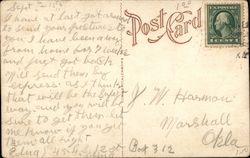 Sept 2-1916
Post Card
I have at last got around
to send your pictures to
you I have been away
from home for 2 weeks
and just got back
Will send them by
express as I think
that will be the best
way and you will be
sure to get them. let
me know if you get
them all right
J. W. Harmon
Marshall
Okla
Box 312